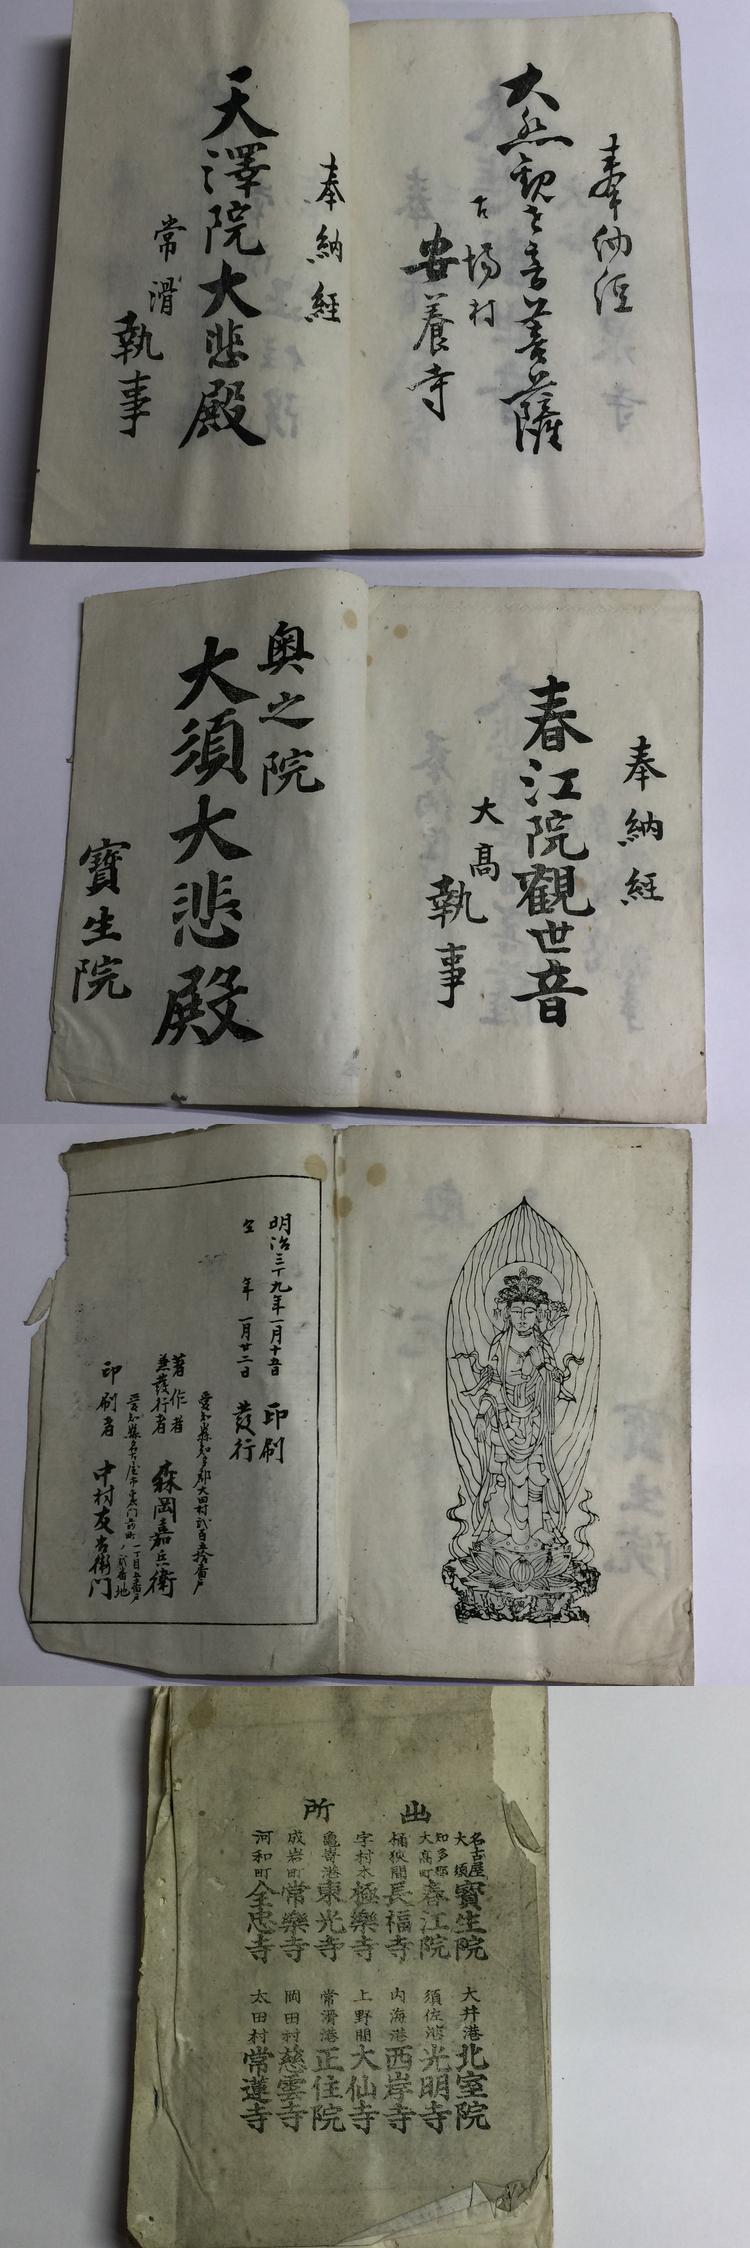 奉納経
大悲観世音菩薩
古場村
安養寺
奉納経
天澤院大悲殿
常滑
執事
奉納経
春江院觀世音
大高
執事
奥之院
大須大悲殿
寶生院
明治三十九年一月十五日 印刷
仝 年 一月廿二日 發行
愛知縣知多郡大田村貮百五拾番戸
著作者
兼發行者 森岡嘉兵衛
愛知縣名古屋市門前町
印刷者 中村友右衛門
出所
名古屋大須 寶生院
知多郡大高町 春江院
桶狭間 長福寺
字村木 極樂寺
亀崎港 東光寺
成岩町 常樂寺
河和町 全忠寺
大井港 北室院
須佐港 光明寺
内海港 西岸寺
上野間 大仙寺
常滑港 正住院
岡田村 慈雲寺
太田村 常蓮寺